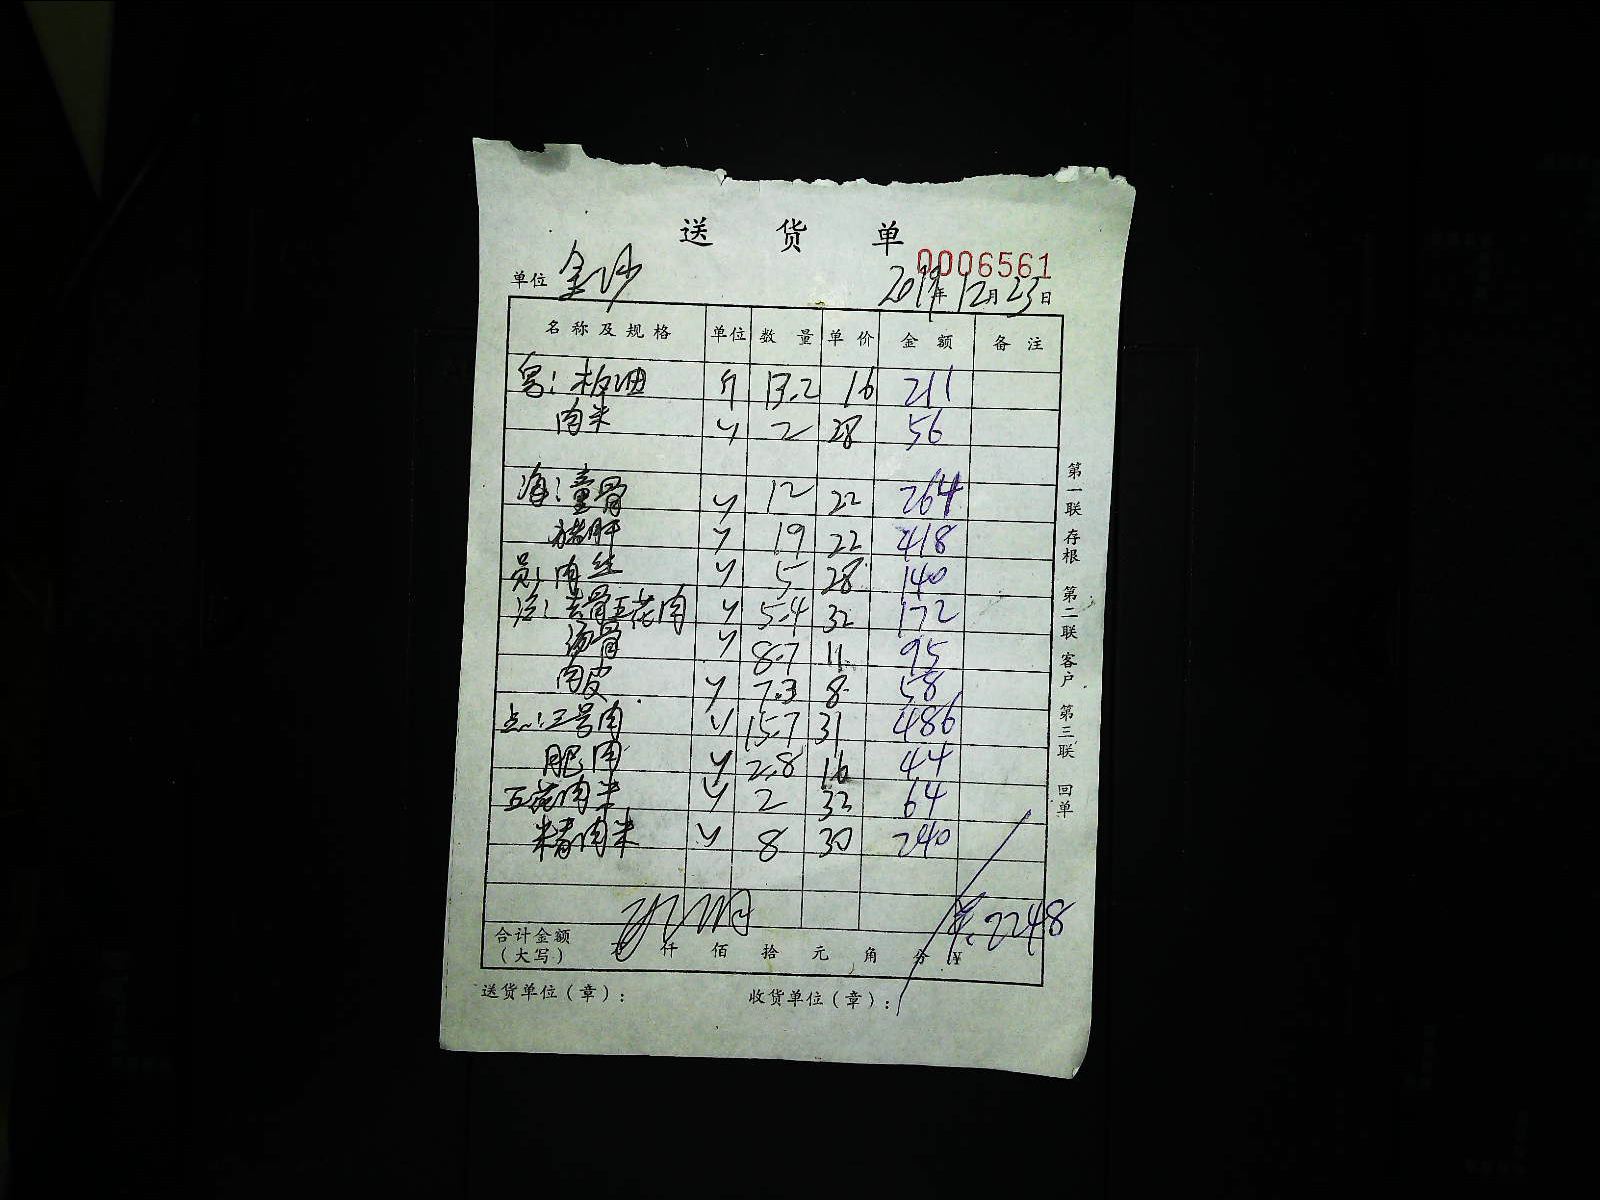 送货单
0006561
单位 金沙 2019年12月23日
名称及规格 单位 数量 单价 金额 备注
板油 斤 13.2 16 211
肉米 〃 2 28 56
海: 童骨 〃 12 22 264
猪肝 〃 19 22 418
员: 肉丝 〃 5 28 140
去骨五花肉 〃 5.4 32 172
汤骨 〃 8.7 11 95
肉皮 〃 7.3 8 58
点: 二号肉 〃 15.7 31 486
肥肉 〃 2.8 16 44
五花肉米 〃 2 32 64
精肉米 〃 8 30 240
合计金额
(大写) 万 仟 佰 拾 元 角 分 ¥ 2248
送货单位(章): 收货单位(章):
第一联 存根 第二联 客户 第三联 回单